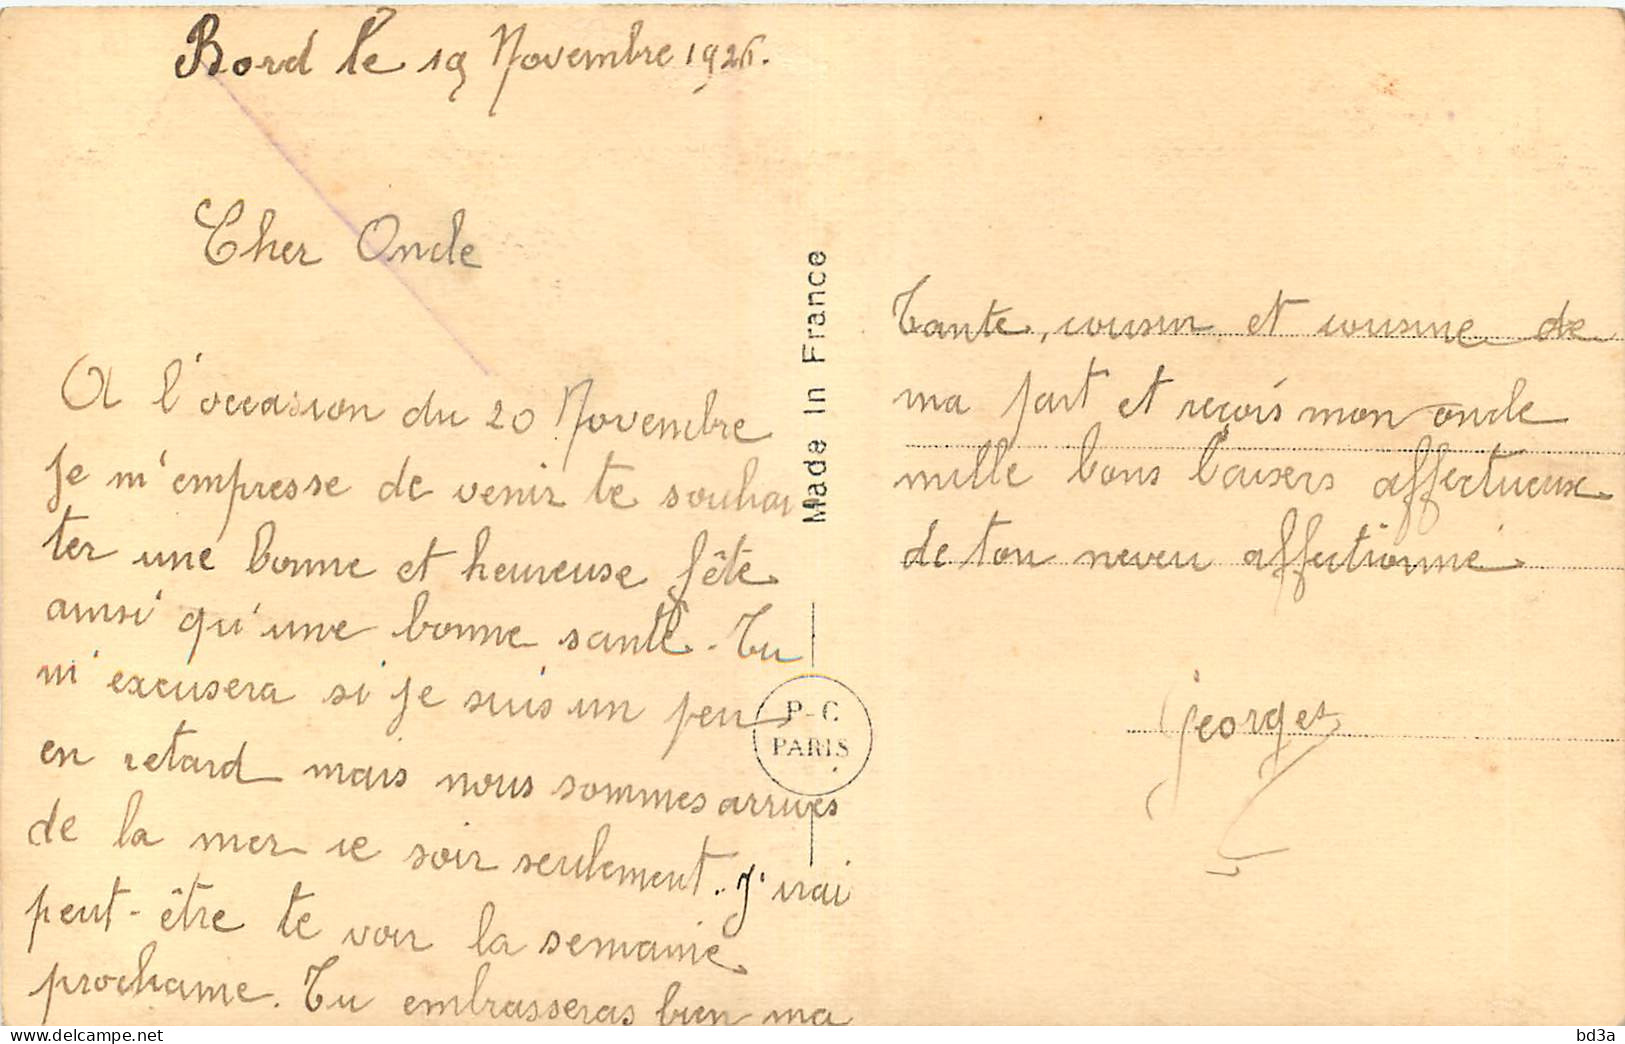 Bord le 19 Novembre 1926.
Cher Oncle
A l'occasion du 20 Novembre
Je m'empresse de venir te souhai
ter une bonne et heureuse fête
ainsi qu'une bonne santé. Tu
m'excusera si je suis un peu
en retard mais nous sommes arrivés
de la mer ce soir seulement. J'irai
peut-être te voir la semaine
prochaine. Tu embrasseras bien ma
Made In France
P-C
PARIS
Tante, cousin et cousine de
ma part et reçois mon oncle
mille bons baisers affectueux
de ton neveu affectionné
Georges
bd3a